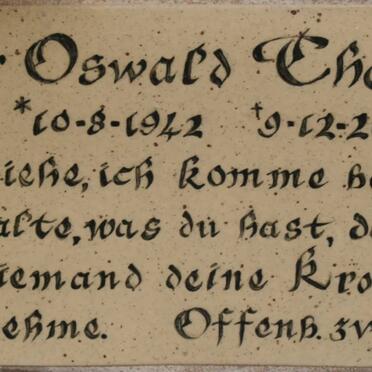 r Oswald Cho
*10-8-1942 †9-12-2
iehe, ich komme b
alte, was du hast, d
iemand deine Kro
ehme. Offenb. 3v